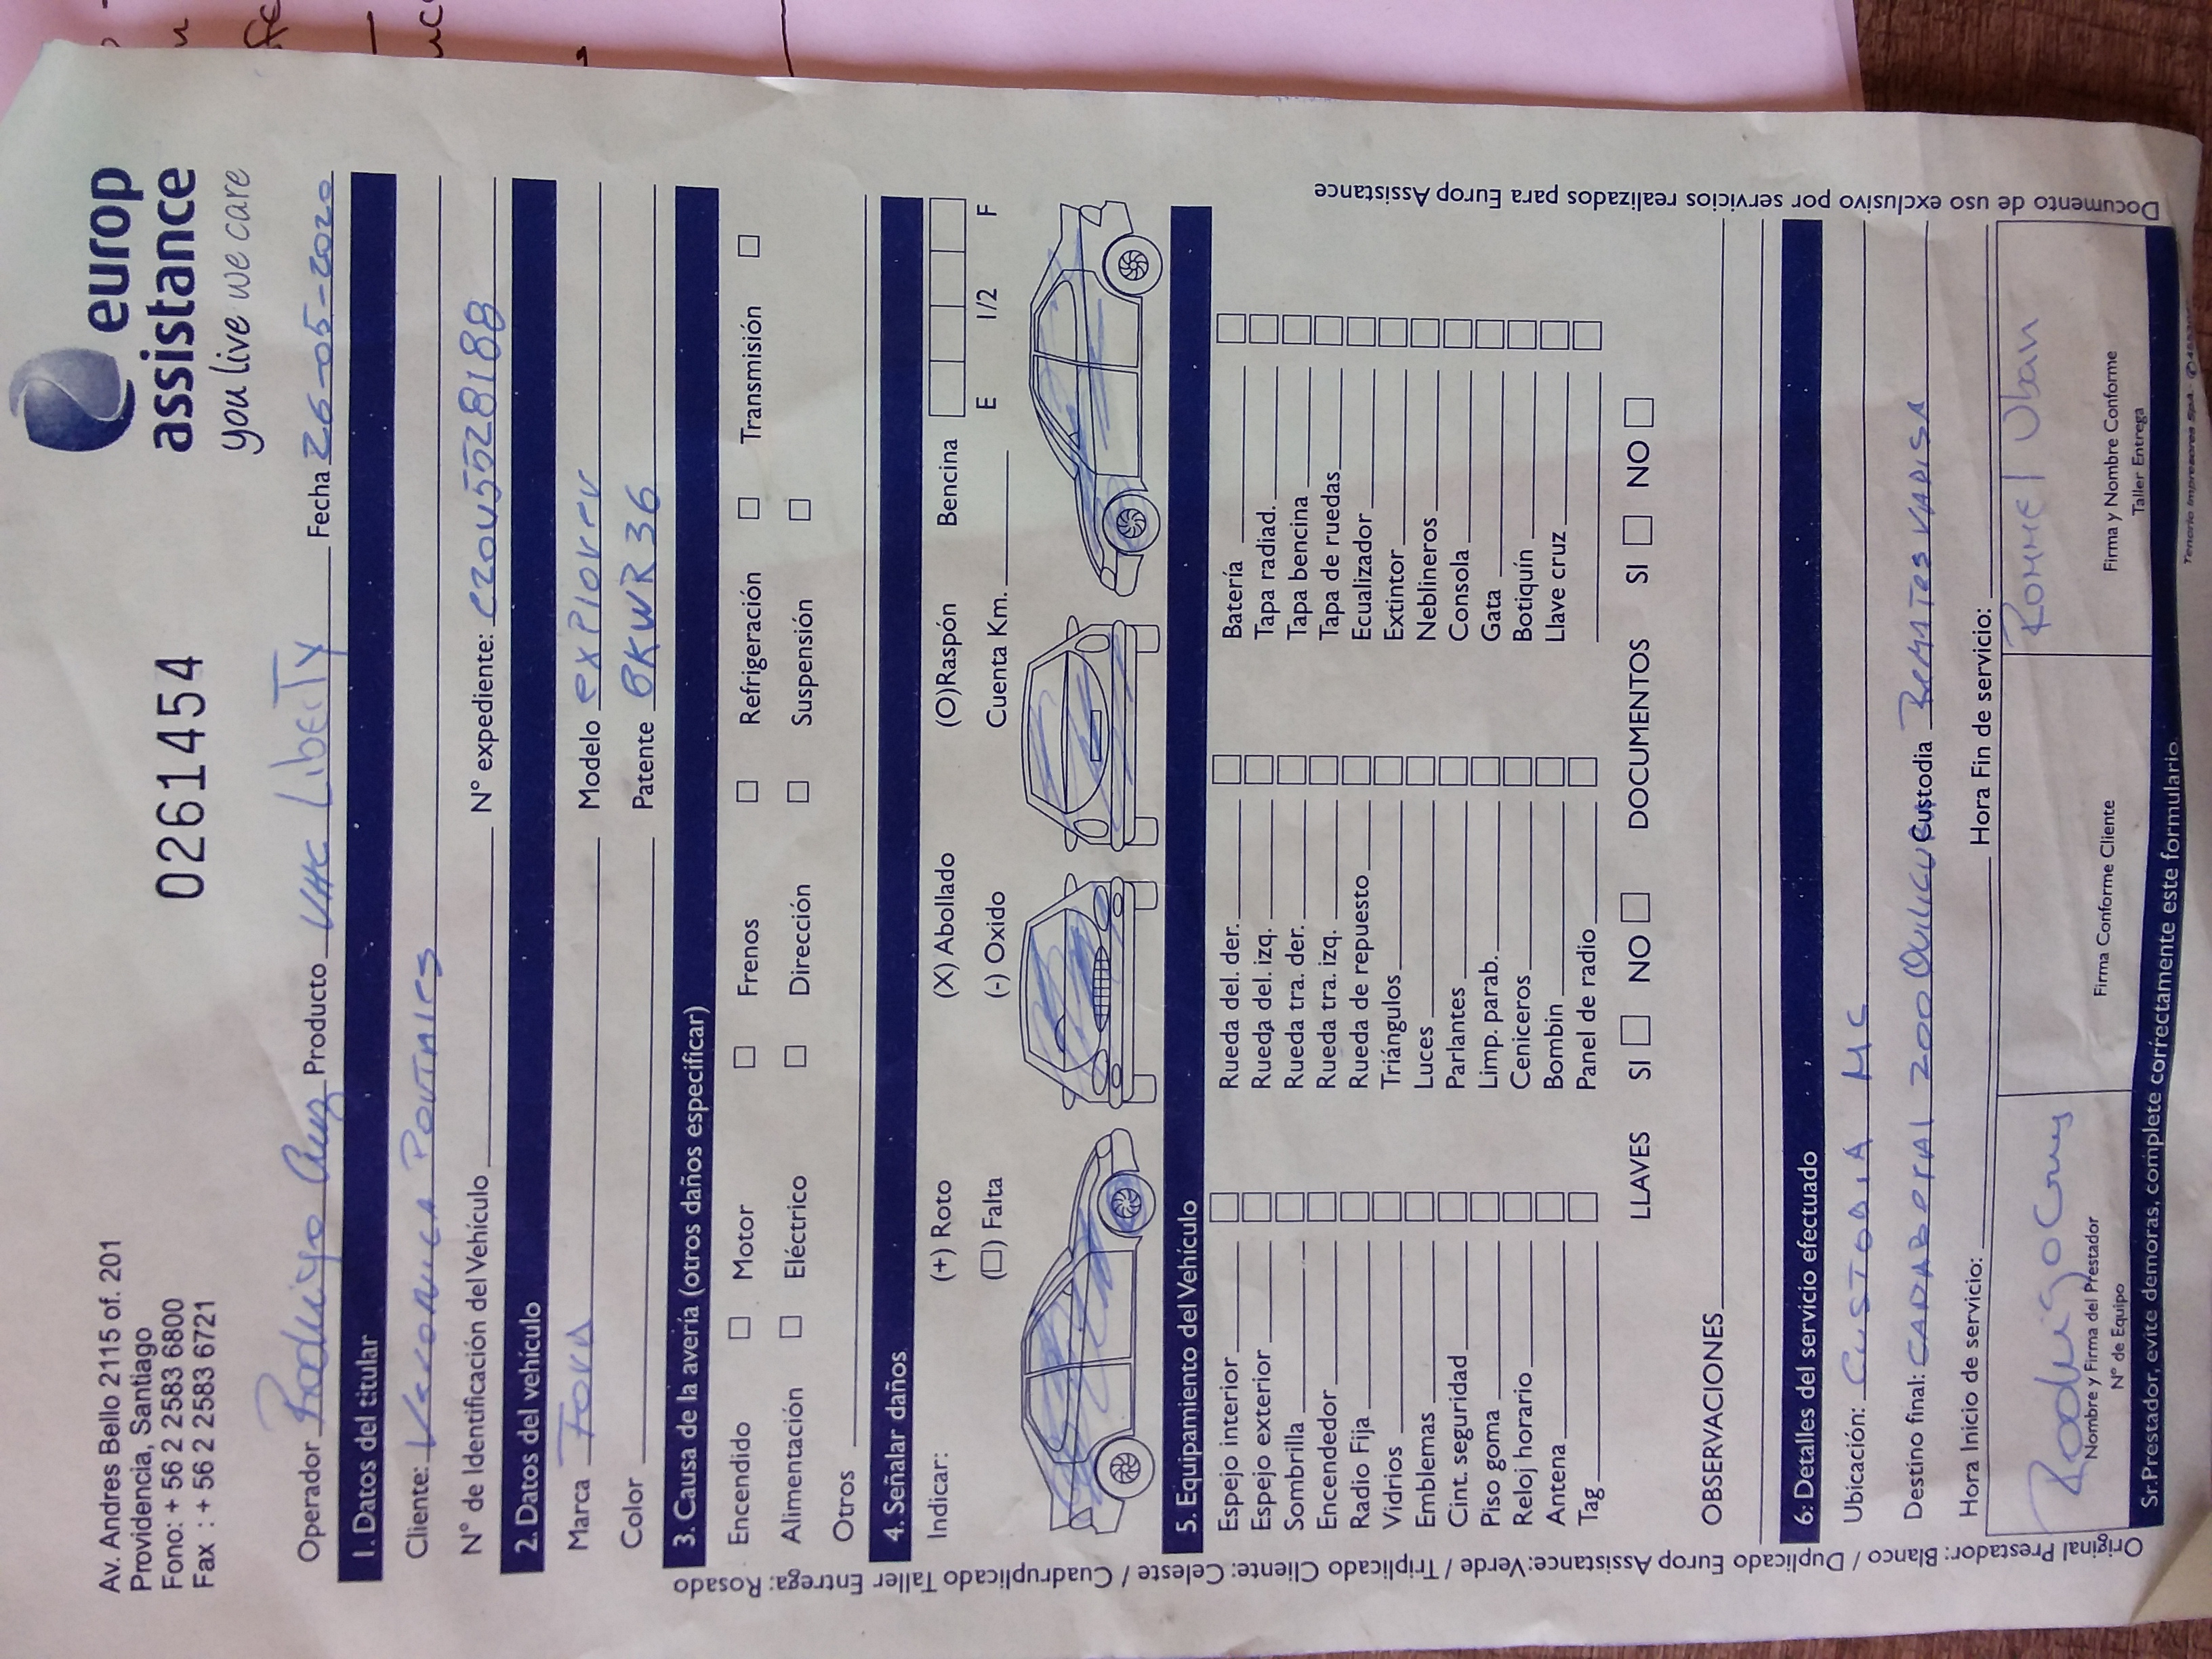 Av. Andres Bello 2115 of. 201
Providencia, Santiago
Fono: + 56 2 2583 6800
Fax : + 56 2 2583 6721
0261454
europ
assistance
you live we care
Operador Rodrigo Cruz Producto VHC LibeCTY Fecha 26-05-2020
1. Datos del titular
Cliente: Veronica
N° de Identificación del Vehículo N° expediente:
2. Datos del vehículo
Marca Ford Modelo exPlorer
Color Patente BKWR36
3. Causa de la avería (otros daños especificar)
Encendido Motor Frenos Refrigeración Transmisión
Alimentación Eléctrico Dirección Suspensión
Otros
4. Señalar daños
Indicar: (+) Roto (X) Abollado (O)Raspón Bencina
(□) Falta (-) Oxido Cuenta Km. E 1/2 F
5. Equipamiento del Vehículo
Espejo interior Rueda del. der. Batería
Espejo exterior Rueda del. izq. Tapa radiad.
Sombrilla Rueda tra. der. Tapa bencina
Encendedor Rueda tra. izq. Tapa de ruedas
Radio Fija Rueda de repuesto Ecualizador
Vidrios Triángulos Extintor
Emblemas Luces Neblineros
Cint. seguridad Parlantes Consola
Piso goma Limp. parab. Gata
Reloj horario Ceniceros Botiquín
Antena Bombin Llave cruz
Tag Panel de radio
LLAVES SI NO DOCUMENTOS SI NO
OBSERVACIONES
6: Detalles del servicio efectuado
Ubicación: CUSTODIA MC
Destino final: 200 Custodia REMATES VADISA
Hora Inicio de servicio: Hora Fin de servicio:
Rodrigo Cruz
Nombre y Firma del Prestador
N° de Equipo
Firma Conforme Cliente
Firma y Nombre Conforme
Taller Entrega
Sr.Prestador, evite demoras, complete correctamente este formulario.
Original Prestador: Blanco / Duplicado Europ Assistance:Verde / Triplicado Cliente: Celeste / Cuadruplicado Taller Entrega: Rosado
Documento de uso exclusivo por servicios realizados para Europ Assistance